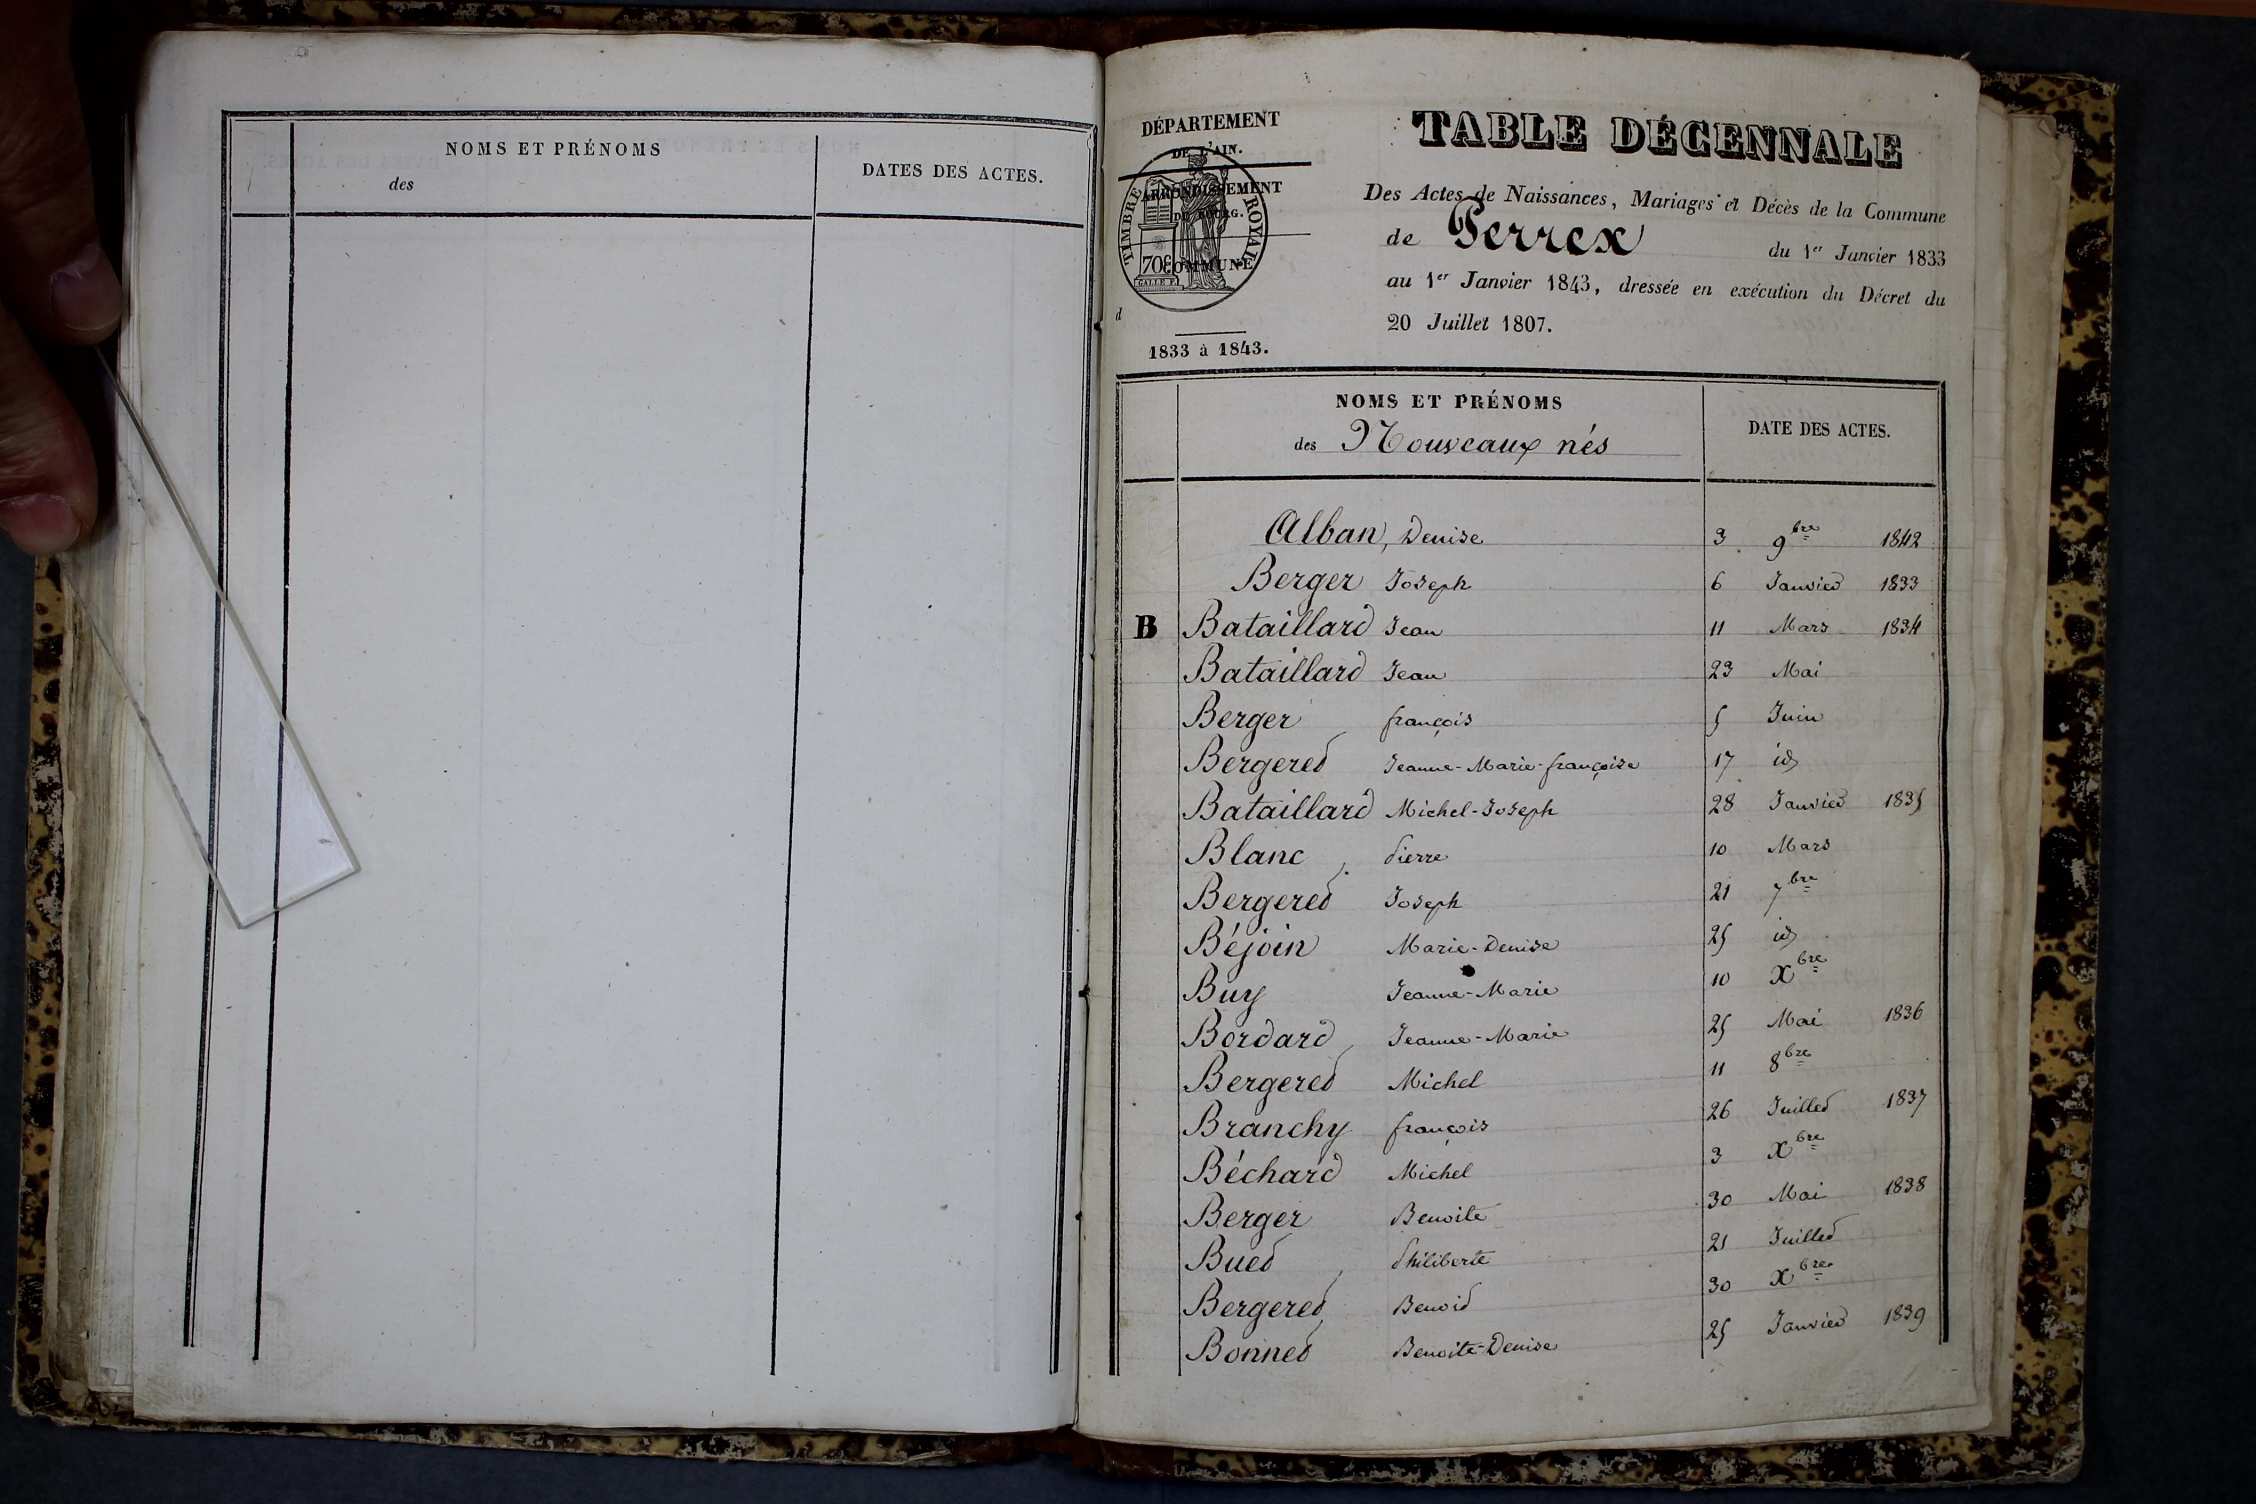 NOMS ET PRÉNOMS
des
DATES DES ACTES.
DÉPARTEMENT
DE L'AIN.
ARRONDISSEMENT
DE BOURG.
COMMUNE
d
TIMBRE ROYAL
70c
1833 à 1843.
TABLE DÉCENNALE
Des Actes de Naissances, Mariages et Décès de la Commune
de Perrex du 1er Janvier 1833
au 1er Janvier 1843, dressée en exécution du Décret du
20 Juillet 1807.
NOMS ET PRÉNOMS
des Nouveaux nés
DATE DES ACTES.
Alban, Denise 3 9bre 1842
Berger Joseph 6 Janvier 1833
B Bataillard Jean 11 Mars 1834
Bataillard Jean 23 Mai
Berger françois 5 Juin
Bergeret Jeanne-Marie-françoise 17 id
Bataillard Michel-Joseph 28 Janvier 1835
Blanc Pierre 10 Mars
Bergeret Joseph 21 7bre
Béjoin Marie-Denise 25 id
Buy Jeanne-Marie 10 Xbre
Bordard Jeanne-Marie 25 Mai 1836
Bergeret Michel 11 8bre
Branchy françois 26 Juillet 1837
Béchard Michel 3 Xbre
Berger Benoite 30 Mai 1838
Buet Philiberte 21 Juillet
Bergeret Benoit 30 Xbre
Bonnet Benoite-Denise 25 Janvier 1839